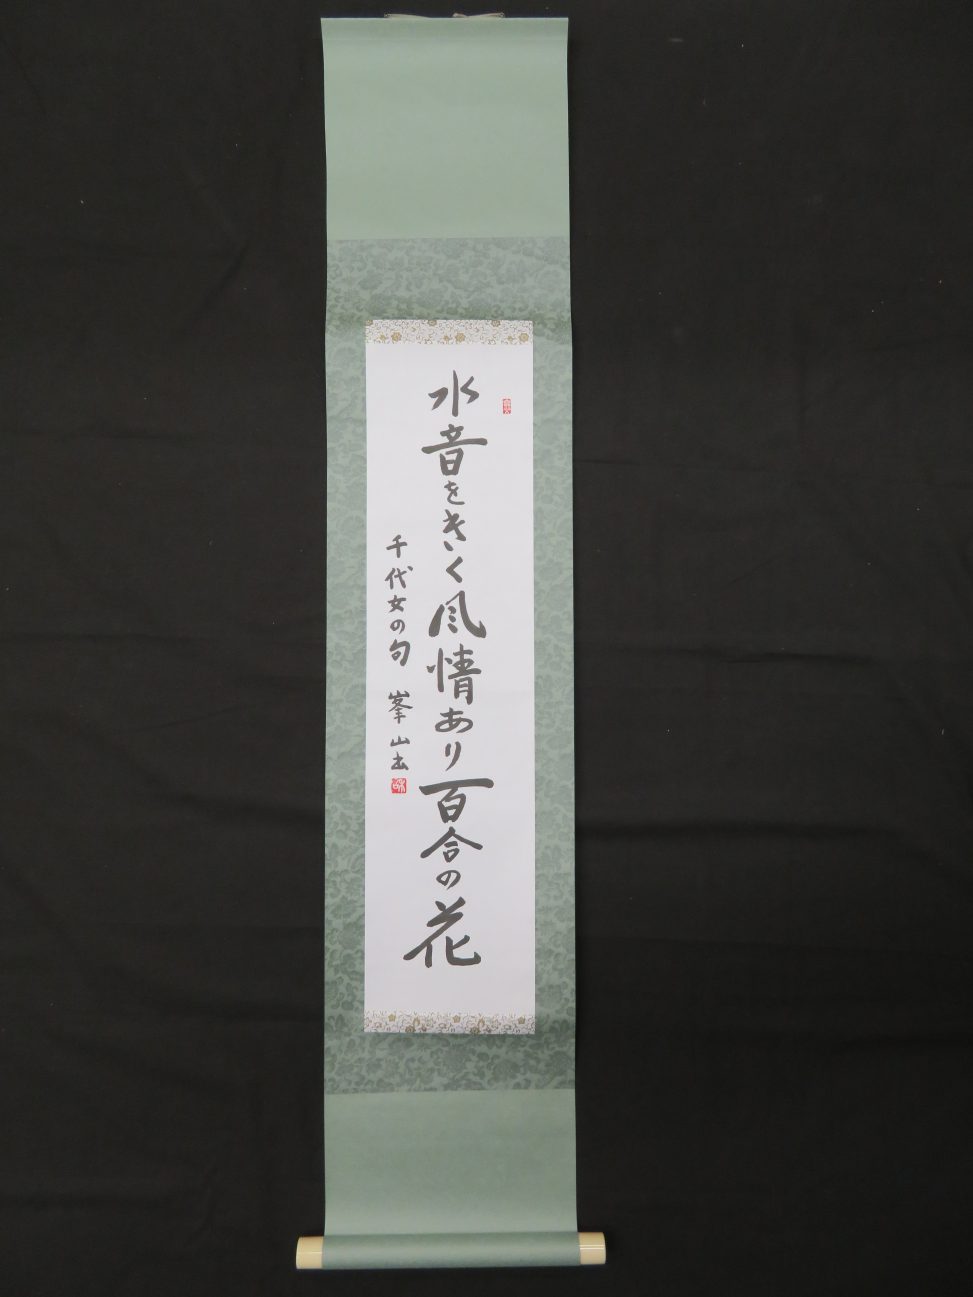 水音をきく風情あり百合の花
千代女の句 峯山書